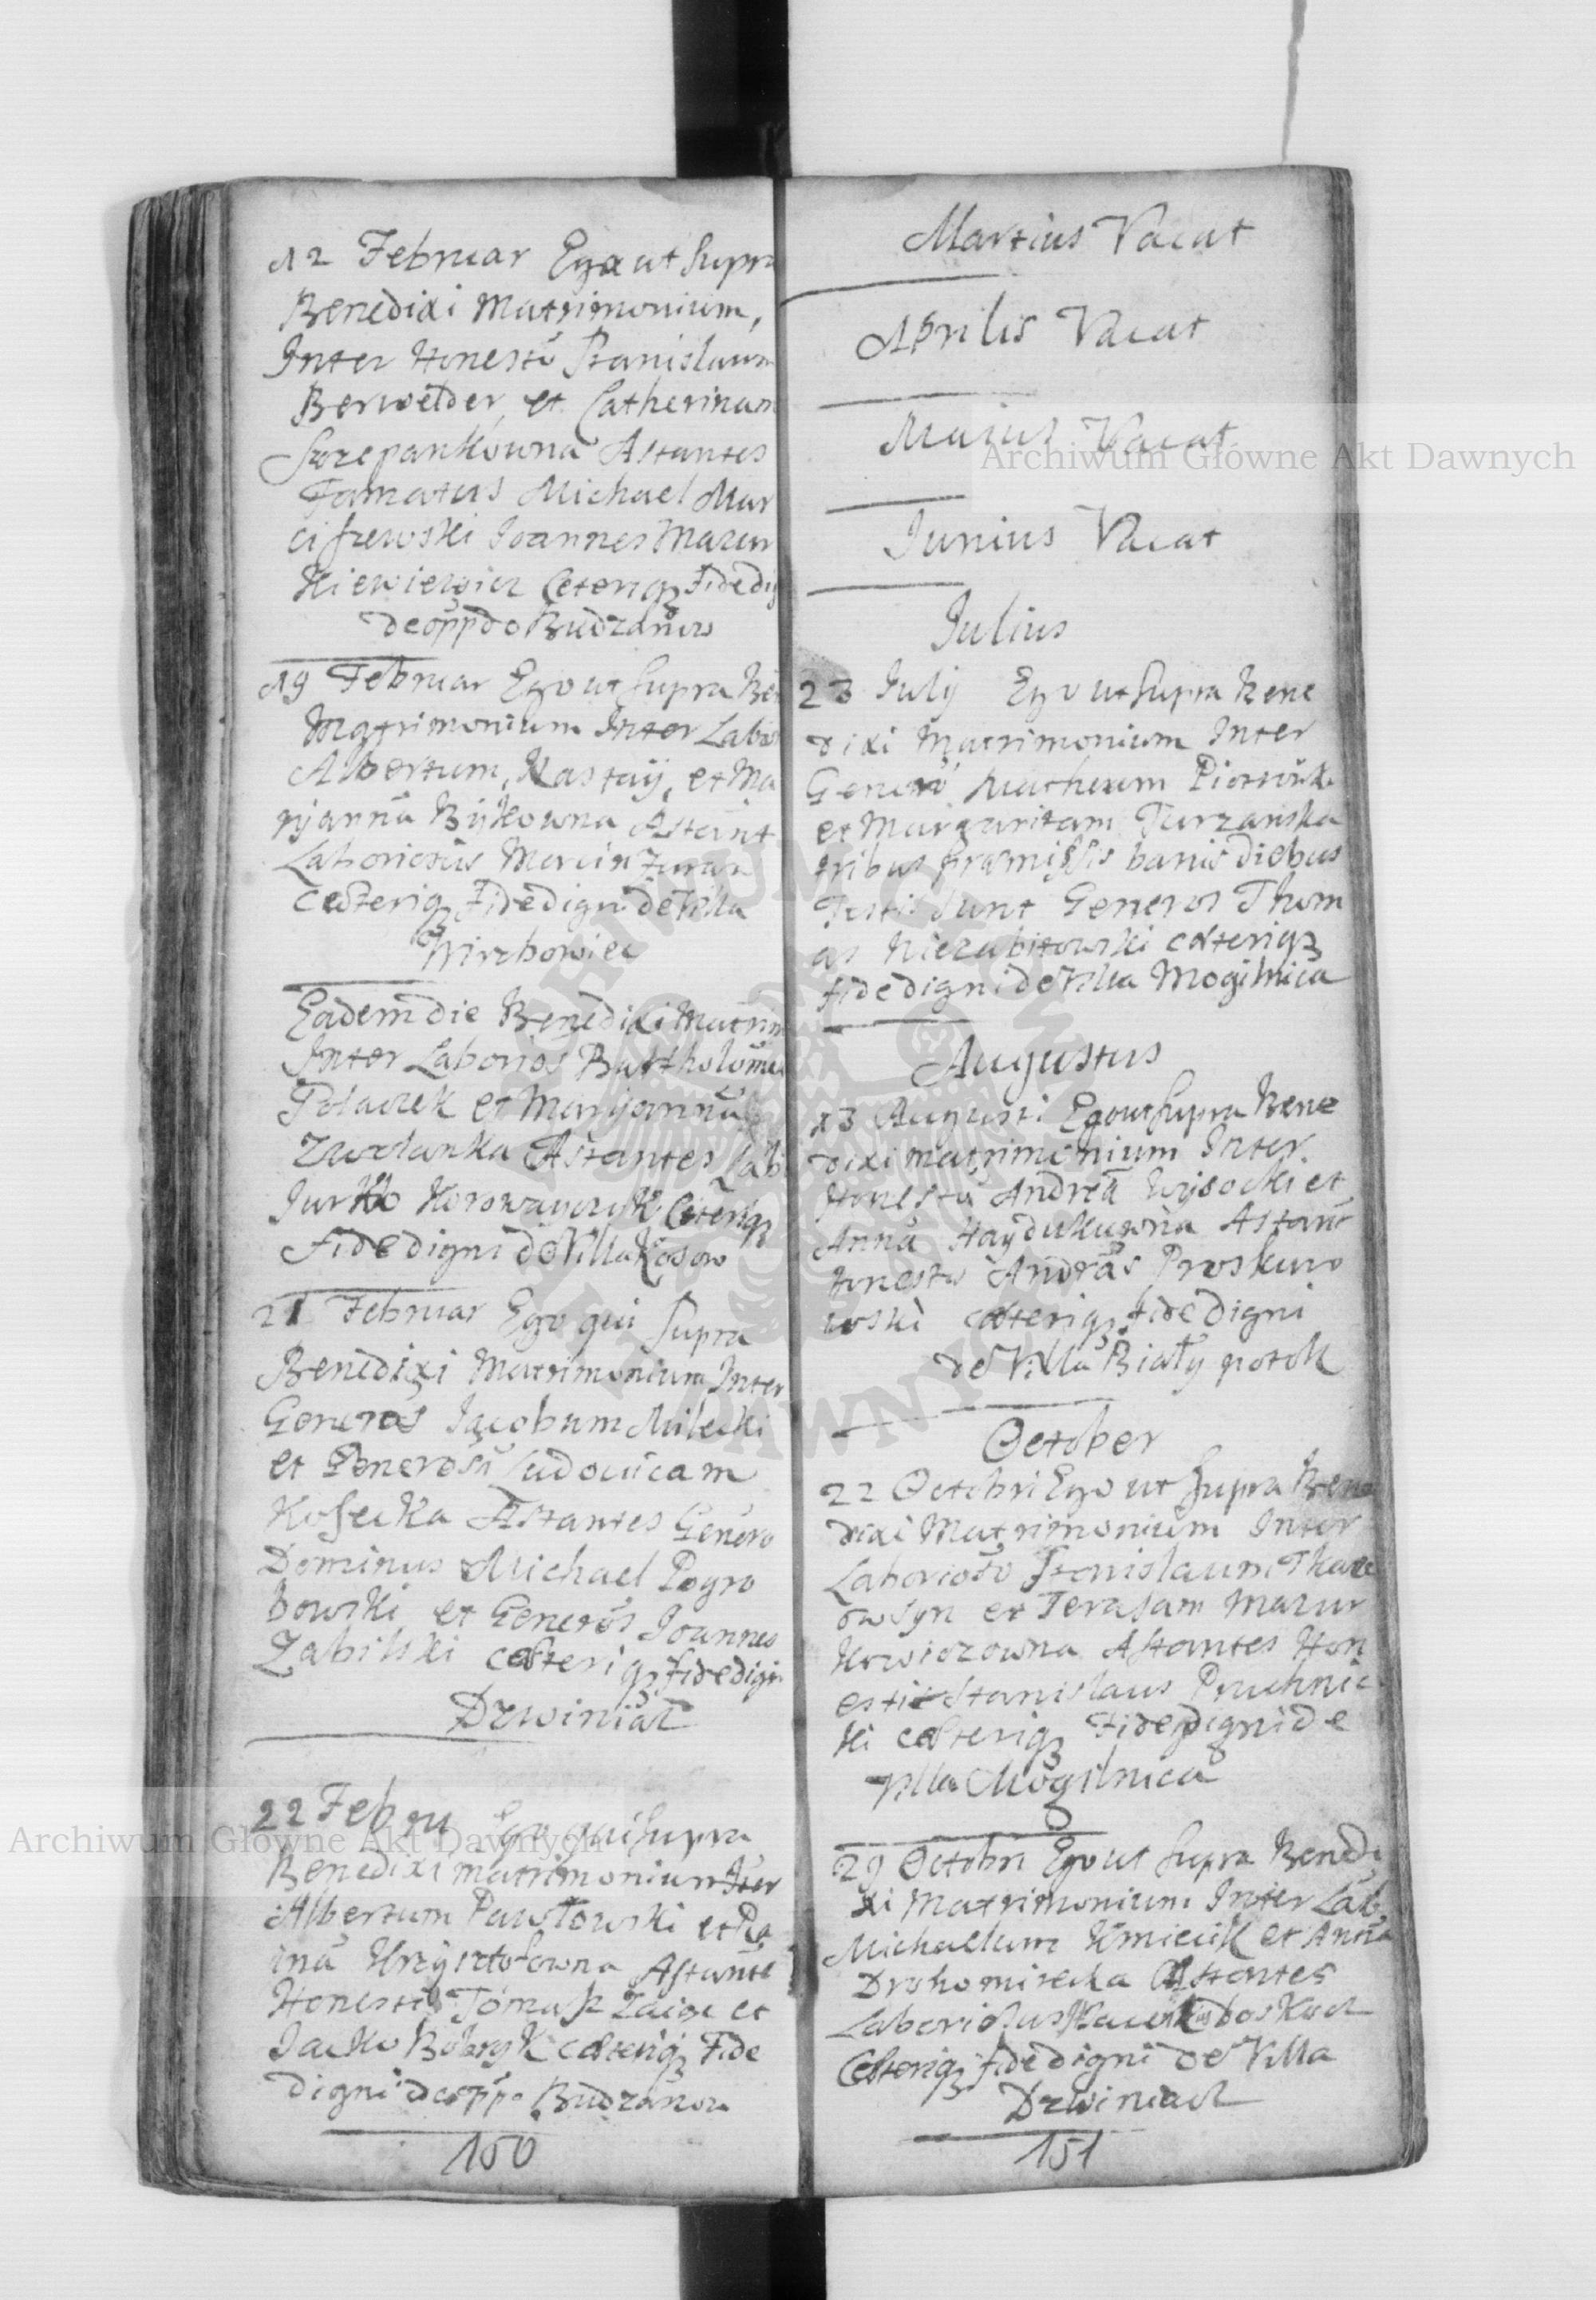 12 Februar Ego ut supra
Benedixi Matrimonium,
Inter Honestū Stanislaum
Berwelder et Catherinam
Szczepankowna Astantes
Famatus Michael Mar
ciszewski Joannes Mazur
kiewiewicz Ceteriq3 Fidedig
de oppdo Budzanow
19 Februar Ego ut supra Ben
Matrimonium Inter Labor
Albertum, Nastaij, et Ma
ryjannā Bÿkowna Astant
Laboriosus Marcin Zuraw
Cæteriq3 Fidedigni de Villa
Wirzbowiec
Eadem die Benedixi Matrim
Inter Laborios Bartholomeu
Polaczek et Maryjannā
Astantes Lab
Jurko Korowayczyk Cæteriq3
Fidedigni de Villa Kosow
21 Februar Ego qui supra
Benedixi Matrimonium Inter
Generos Jacobum Milecki
et Generosā Ludovicam
Kosecka Astantes Genero
Dominus Michael Pogro
bowski et Generos Joannes
Zabilski cæteriq3 fidedigni
Dzwiniacz
22 Febru Ego qui supra
Benedixi matrimonium Iter
Albertum Pawłowski et Re
inā Krzysztofowna Astante
Honesti Tomasz Zaige et
Jacko Bobryk cæteriq3 Fide
digni de oppo Budzanow
150
Martius Vacat
Aprilis Vacat
Maius Vacat
Junius Vacat
Julius
23 Julij Ego ut supra Bene
dixi Matrimonium Inter
Generū Matheum
et Margaritam Turzanska
tribus præmissis banis diebus
Testis sunt Generos Thom
as Niezabitowski cæteriq3
fidedigni de Villa Mogilnica
Augustus
13 Augusti Ego ut supra Bene
dixi matrimonium Inter
Honestū Andreā Wysocki et
Annā Haydukuwna Astant
Honestus Andræas Proskuro
wski cæteriq3 fide digni
de Villa Biały potok
October
22 Octobri Ego ut supra Bene
dixi Matrimonium Inter
Laboriosū Stanislaum Tkacz
ow syn et Terasam Mazur
Astantes Hon
esti Stanislaus Pruchnic
ki cæteriq3 Fidedigni de
Villa Mogilnica
29 Octobri Ego ut supra Benedi
xi Matrimonium Inter Lab
Michaelum Kmiecik et Annā
Drohomirecka Astantes
Laboriosus
Cæteriq3 fidedigni de Villa
Dzwiniacz
151
Archiwum Główne Akt Dawnych
Archiwum Główne Akt Dawnych